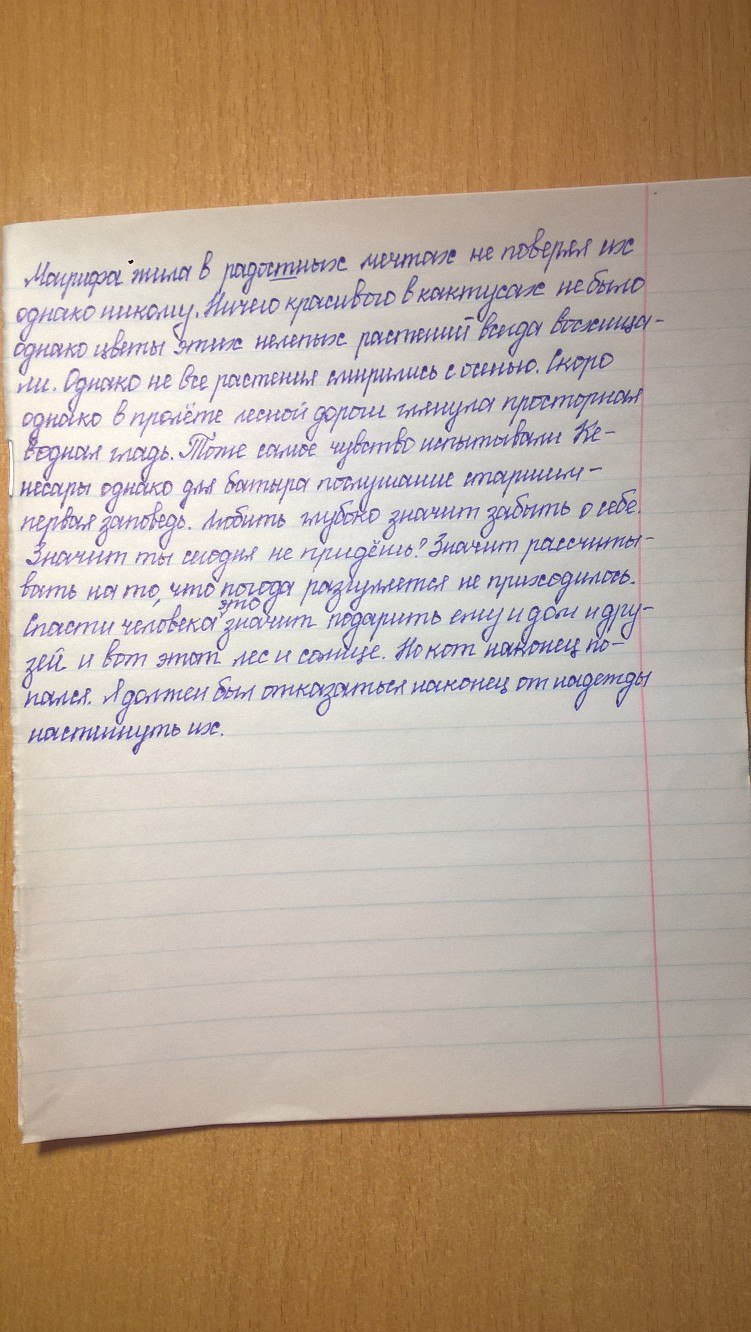 Магрифа жила в радостных мечтах не поверяя их
однако никому. Ничего красивого в кактусах не было
однако цветы этих нелепых растений всегда восхища-
ли. Однако не все растения смирились с осенью. Скоро
однако в пролёте лесной дороги глянула просторная
водная гладь. Тоже самое чувство испытывали Ке-
несары однако для батыра послушание старшим-
первая заповедь. Любить глубоко значит забыть о себе.
Значит ты сегодня не придёшь? Значит рассчиты-
вать на то, что погода разгуляется не приходилось.
Спасти человека, это значит подарить ему и дом и дру-
зей и вот этот лес и солнце. Но кот наконец по-
пался. Я должен был отказаться наконец от надежды
настигнуть их.